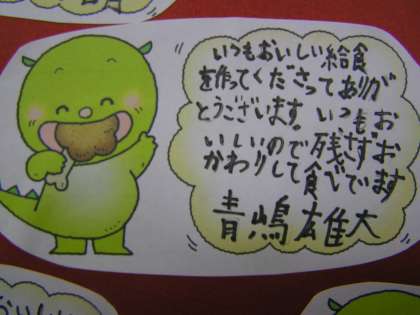 いつもおいしい給食
を作ってくださってありが
とうございます。いつもお
いしいので残さずお
かわりして食べてます
青嶋雄大